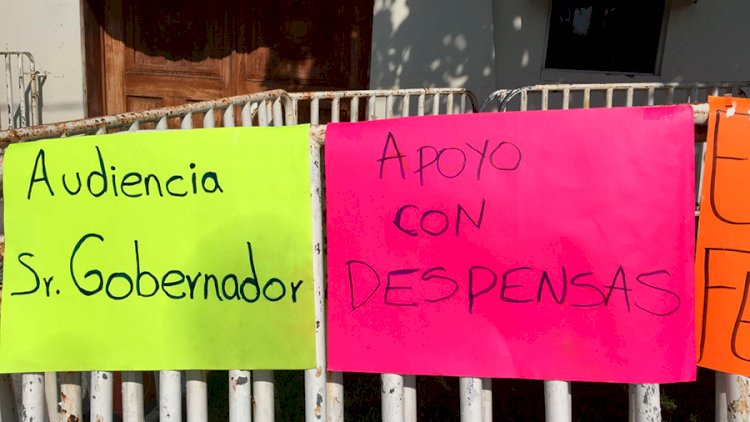 Audiencia
Sr. Gobernador
APOYO
CON
DESPENSAS